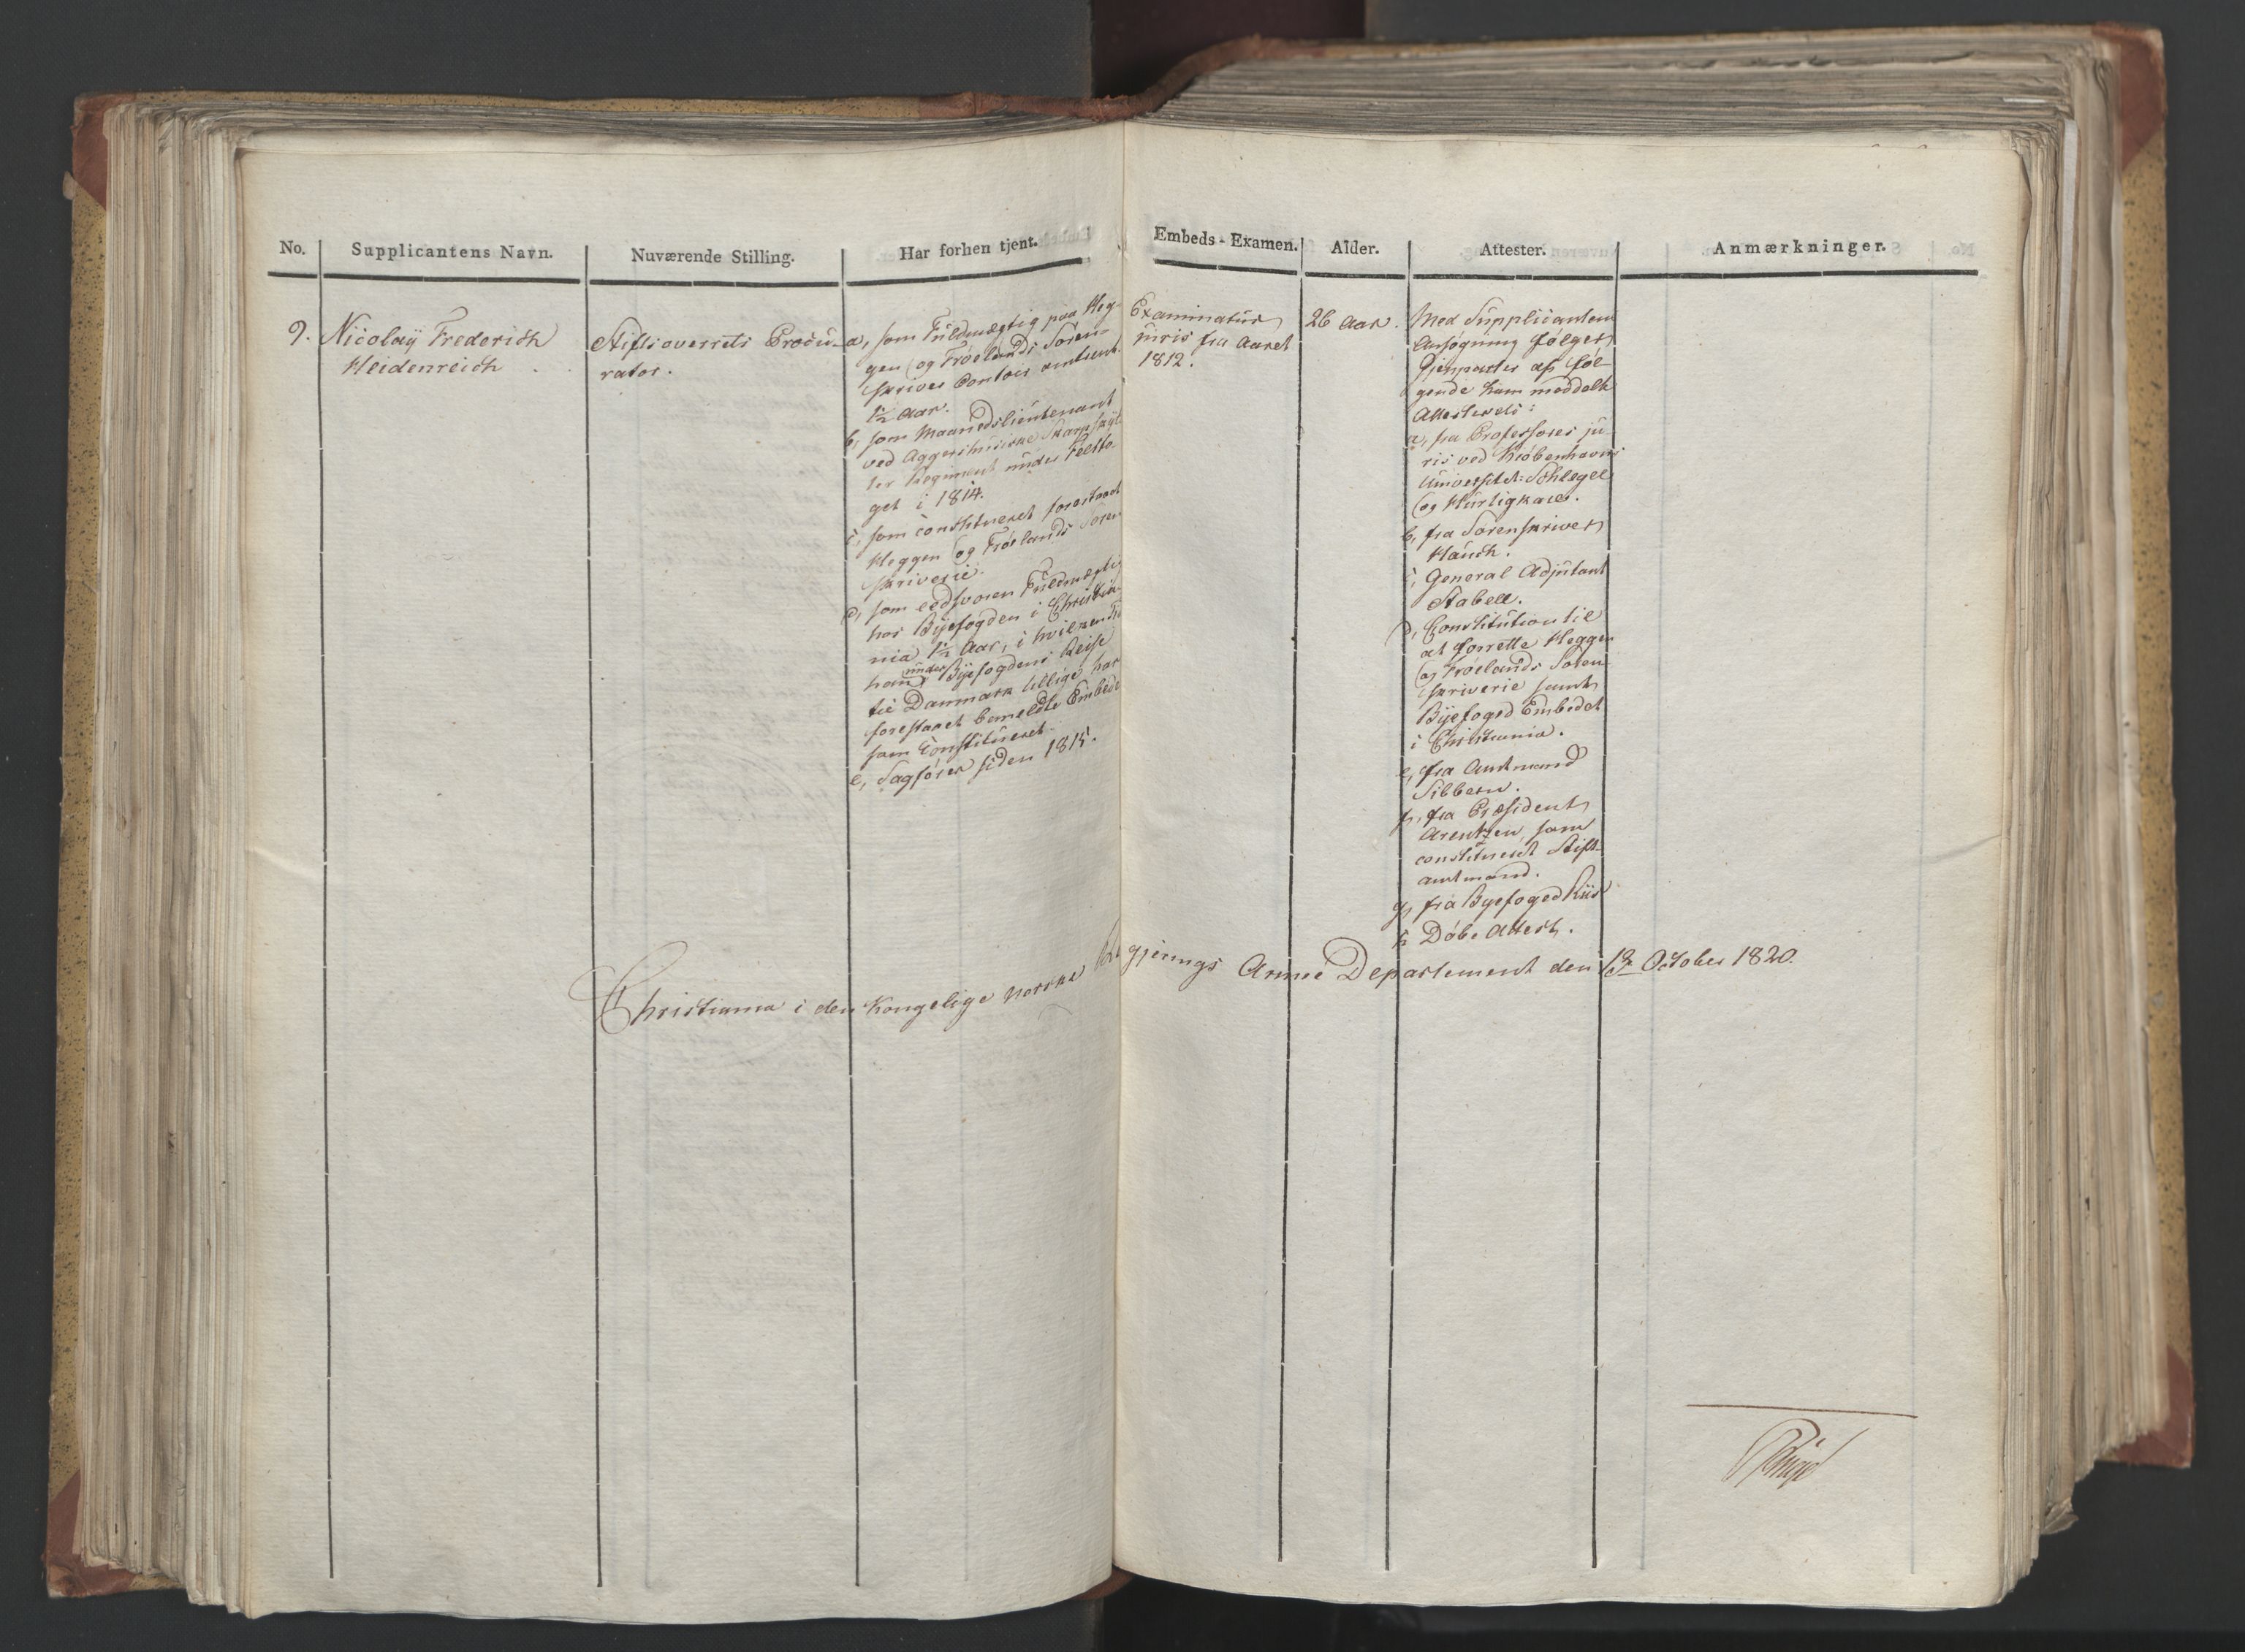 No. Supplicantens Navn. Nuværende Stilling. Har forhen tjent. Embeds-Examen. Alder. Attester. Anmærkninger.
9.
Nicolaÿ Frederich
Heidenreich
Stiftsoverrets Procu-
rator.
a, som Fuldmægtig paa Heg-
gen og Frølands Soren-
skriver Contoir omtrent
1½ Aar.
b, som Maanedslieutenant
ved Aggershusiske Skarpskyt-
ter Regiment under Feltto-
get i 1814.
c, som constitueret forestaaet
Heggen og Frølands Soren
skriverie.
d, som eedsvoren Fuldmægtig
hos Byefogden i Christia-
nia 1½ Aar, i hvilken Tid
han under Byefogdens Reise
til Danmark tillige har
forestaaet bemeldte Embede
som Constitueret.
e, Sagfører siden 1815.
Examinatus
juris fra Aaret
1812.
26 Aar.
Med Supplicantens
Ansøgning følger
Gjenparter af føl-
gende ham meddelte
Attester:
a, fra Professorer ju-
ris ved Kiøbenhavns
Universitet: Schlegel
og Hurtigkarl.
b, fra Sorenskriver
Hauch.
c, General Adjutant
Stabell.
d, Constitution til
at forrette Heggen
og Frølands Soren-
skriverie samt
Byefoged Embedet
i Christiania.
e, fra Amtmand
Sibbern.
f, fra Præsident
Arentzen, som
constitueret Stift-
amtmand.
g, fra Byefoged Riis
h Døbe Attest.
Christiania i den Kongelige Norske Regjerings Armee Departement den October 1820.